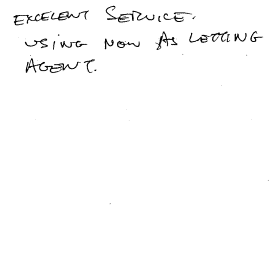 EXCELENT SERVICE.
USING NOW AS LETTING
AGENT.